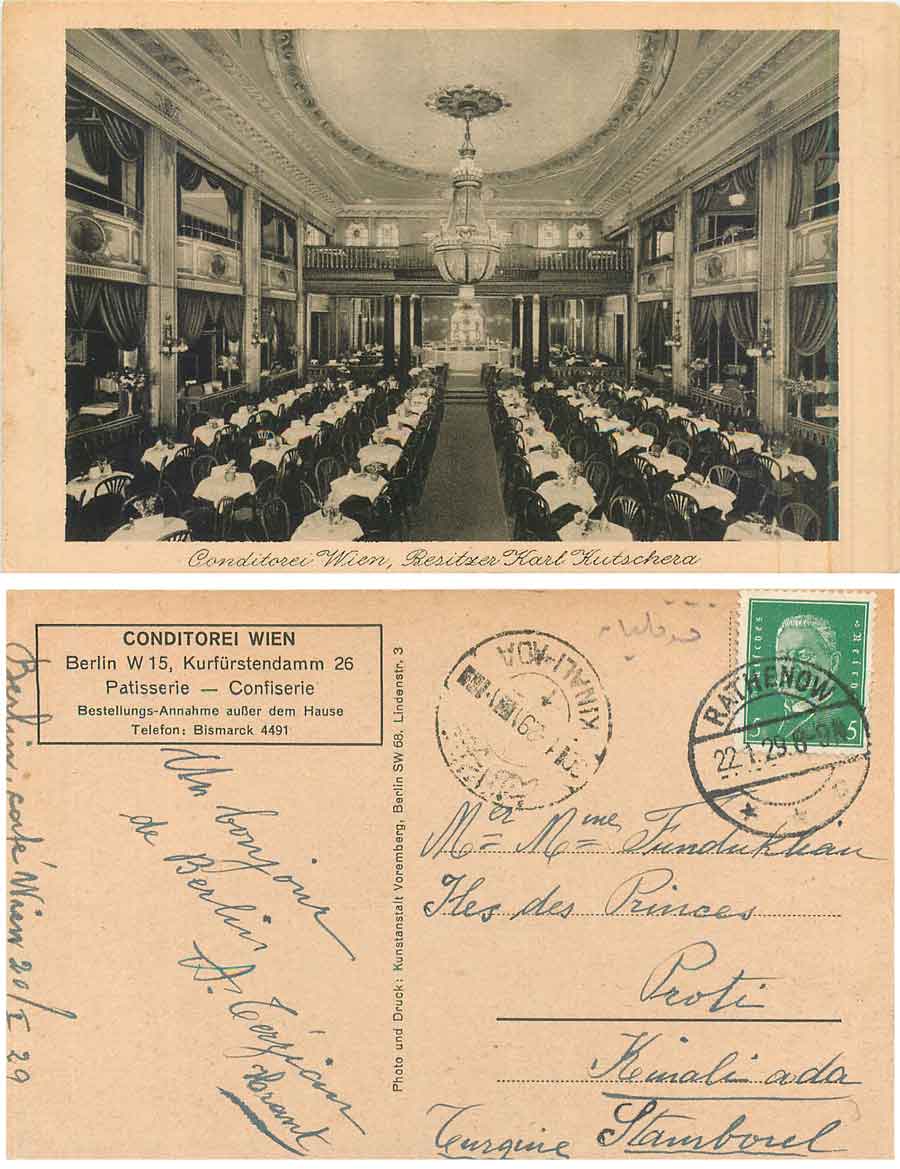 Conditorei Wien, Besitzer Karl Kutschera
CONDITOREI WIEN
Berlin W 15, Kurfürstendamm 26
Patisserie — Confiserie
Bestellungs-Annahme außer dem Hause
Telefon: Bismarck 4491
Berlin, café Wien 20/I 29
Un bonjour
de Berlin
A. Terzian
Hrant
Photo und Druck: Kunstanstalt Voremberg, Berlin SW 68, Lindenstr. 3
KINALI-ADA
RATHENOW
22.1.29.
5
Mr Mme Fundukhian
Iles des Princes
Proti
Kinali ada
Turquie Stamboul